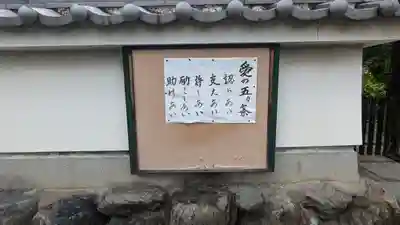 愛の五ヶ条
認めあい
支えあい
許しあい
励ましあい
助けあい